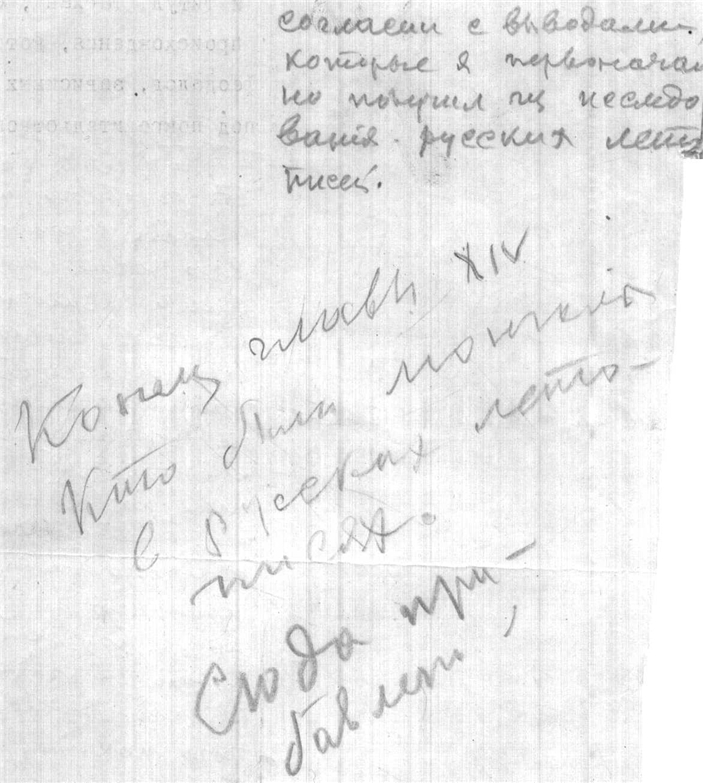 согласии с выводами,
которые я первоначаль
но получил из исследо
вания русских лето
писей.
Конец главы XIV
Кто были монголы
в русских лето-
писях.
Сюда при-
бавлени